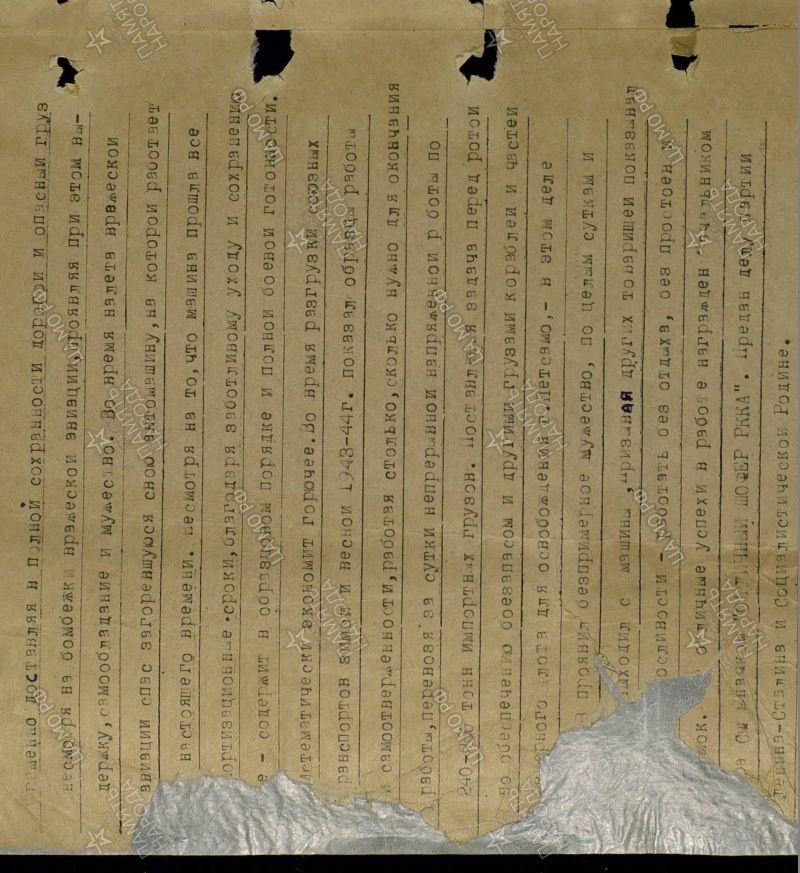 доставляя в полной сохранности дорогой и опасный груз
несмотря на бомбежки вражеской авиации, проявляя при этом вы-
держку, самообладание и мужество. Во время налета вражеской
авиации спас загоревшуюся свою автомашину, на которой работает
настоящего времени. Несмотря на то, что машина прошла все
ортизационные сроки, благодаря заботливому уходу и сохранению
е - содержит в образцовом порядке и полной боевой готовности.
истематически экономит горючее. Во время разгрузки союзных
ранспортов зимой и весной 1943-44г. показал образцы работы
и самоотверженности, работая столько, сколько нужно для окончания
работы, перевозя за сутки непрерывной напряженной р боты по
тонн импортных грузов. Поставленная задача перед ротой
по обеспечению боезапасом и другими грузами кораблей и частей
ерного флота для освобождения г.Петсамо,- в этом деле
проявил безпримерное мужество, по целым суткам и
выходил с машины, призывая других товарищей показывал
осливости - работать без отдыха, без простоев и
мок. отличные успехи в работе награжден начальником
а СФ значком "ОТЛИЧНЫЙ ШОФЕР РККА". Предан делу партии
Ленина-Сталина и Социалистической Родине.